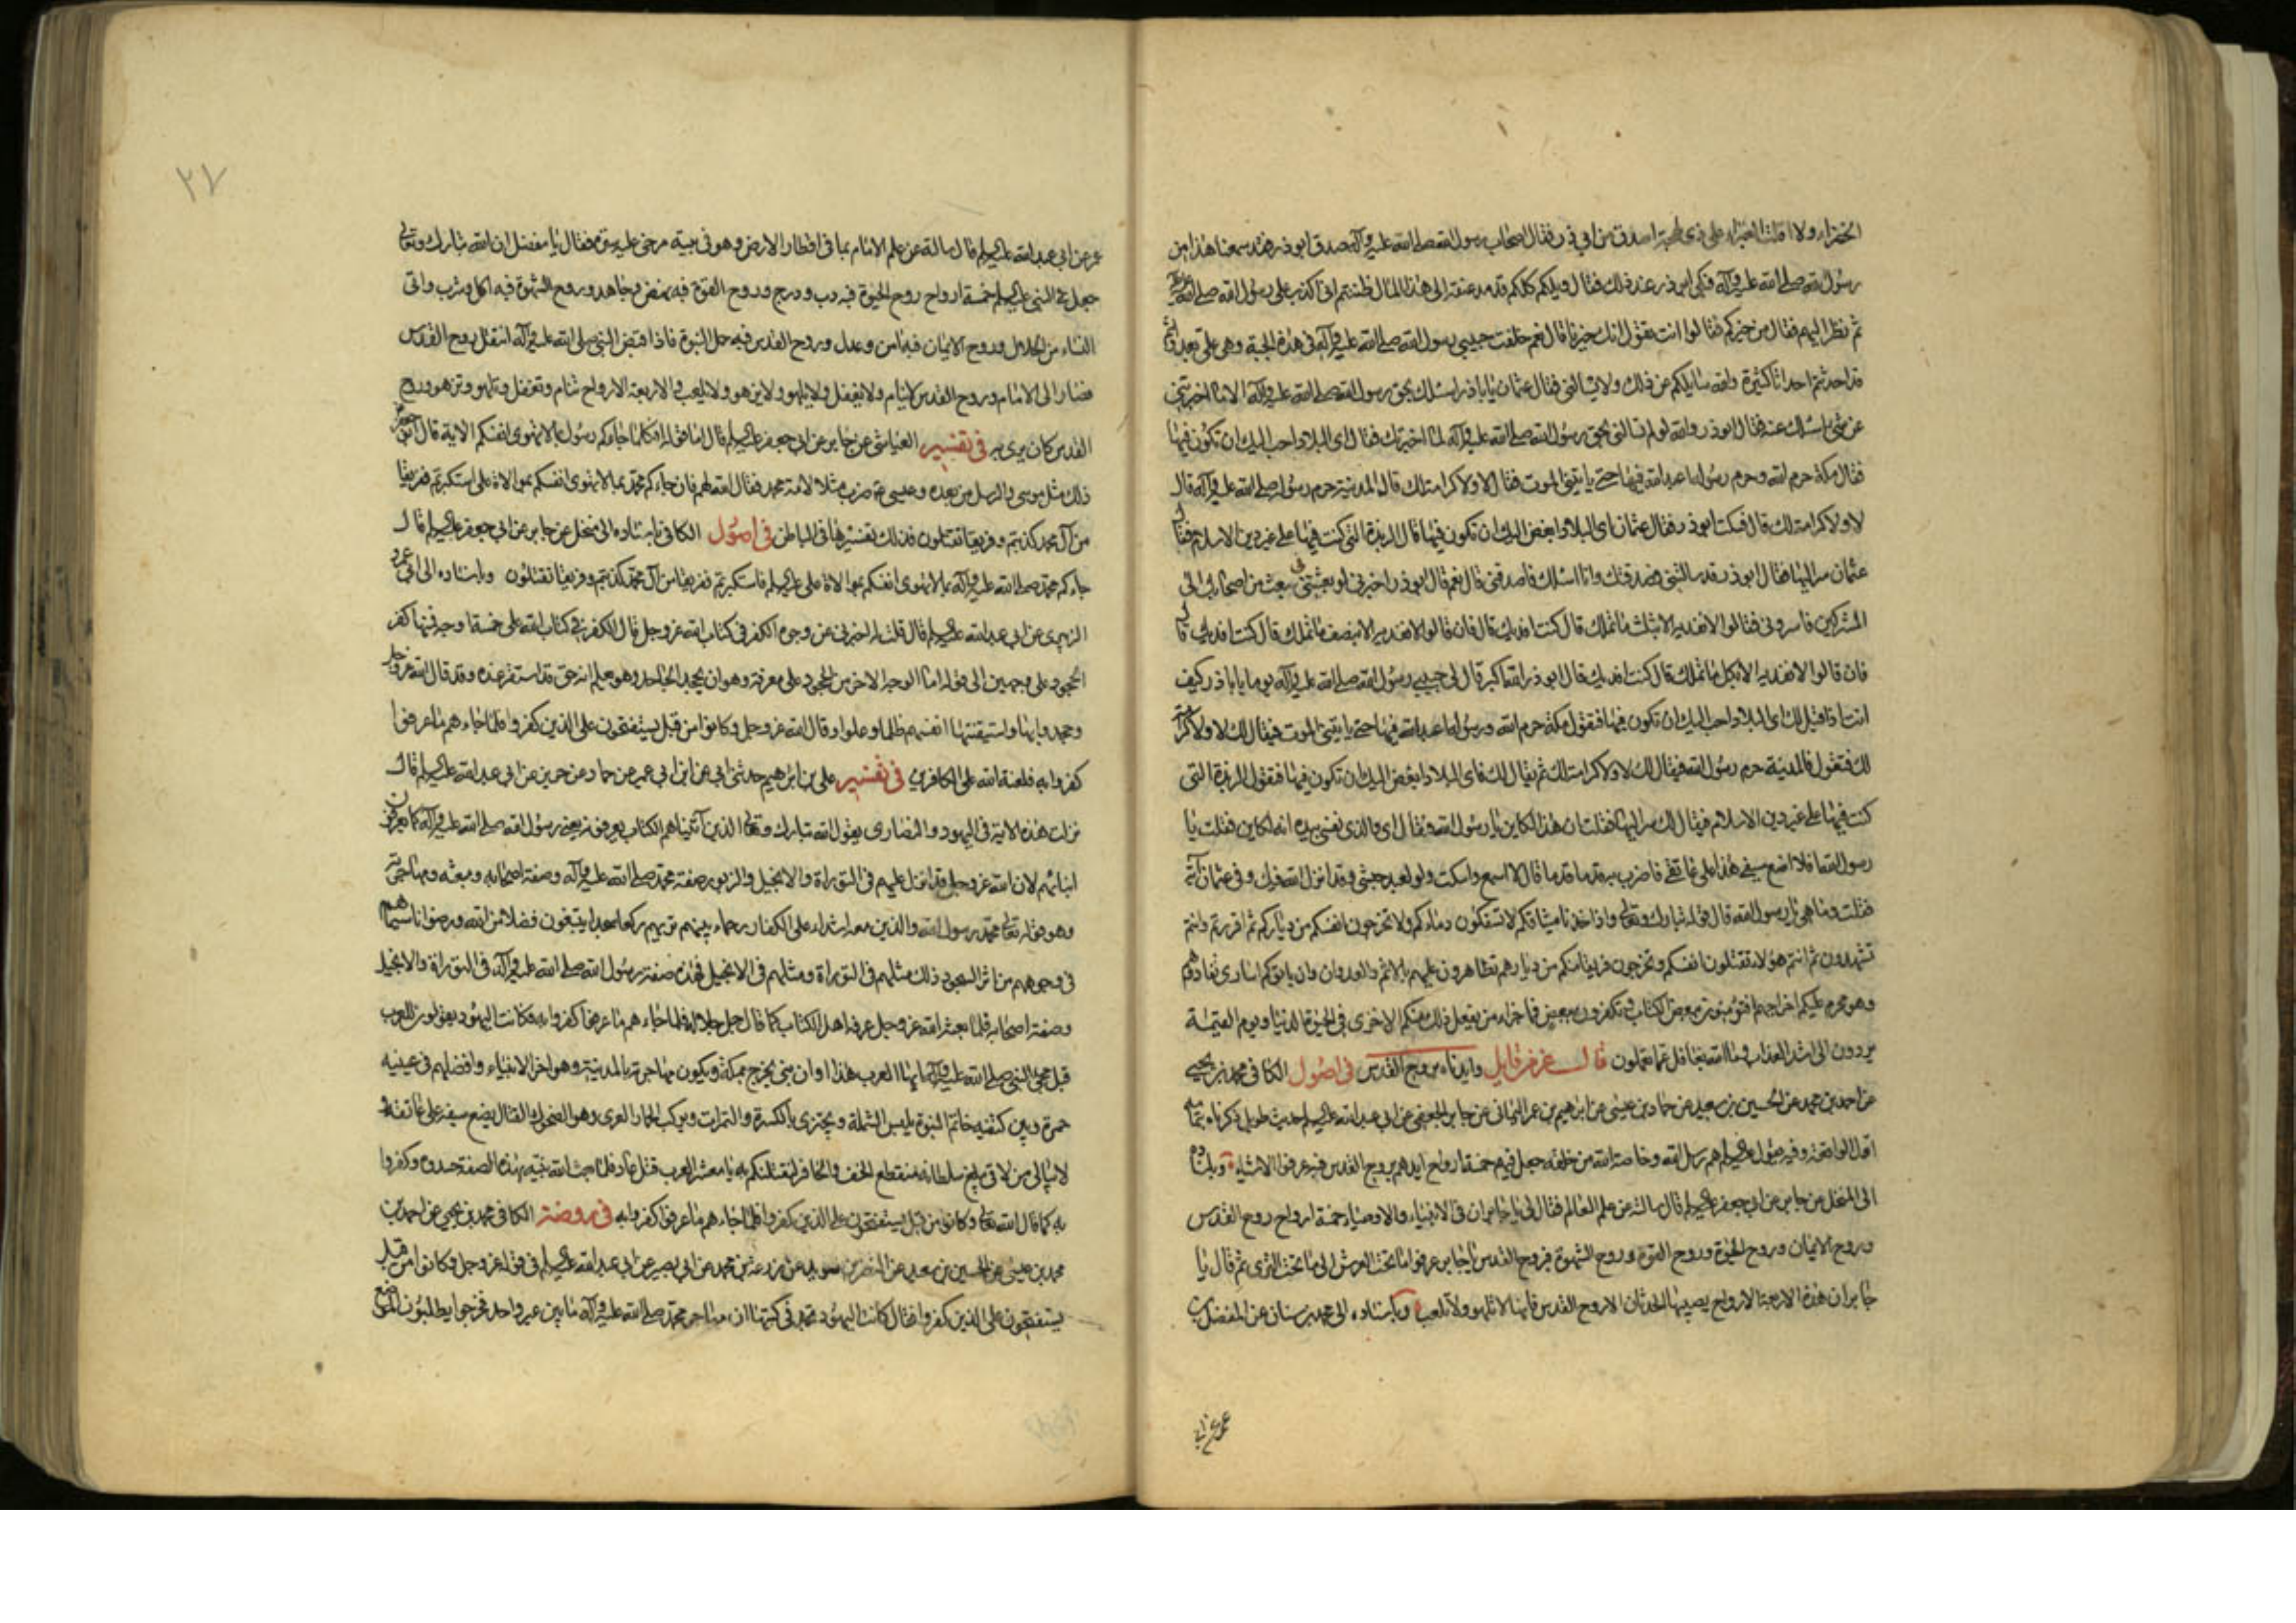 الخضراء ولا اقلت الغبراء على ذى لهجة اصدق من ابي ذر فقال اصحاب رسول الله صلى الله عليه وآله صدق ابو ذر قد سمعنا هذا من
رسول الله صلى الله عليه وآله فبكى ابو ذر عند ذلك فقال ويلكم كلكم قد مد عنقه الى هذا المال ظننتم انى اكذب على رسول الله صلى الله عليه وآله
ثم نظر اليهم فقال من خيركم فقالوا انت تقول انك خيرنا قال نعم خلفت حبيبي رسول الله صلى الله عليه وآله فى هذه الجبة وهى على بعد وانتم
قد احدثتم احداثا كثيرة والله سايلكم عن ذلك ولا يسالنى فقال عثمان يا ابا ذر اسئلك بحق رسول الله صلى الله عليه وآله الا ما اخبرتنى
عن شئ اسئلك عنه فقال ابو ذر والله لو لم تسالنى بحق رسول الله صلى الله عليه وآله لما اخبرتك فقال اى البلاد احب اليك ان تكون فيها
فقال مكة حرم الله وحرم رسوله اعبد الله فيها حتى ياتينى الموت فقال لا ولا كرامة لك قال المدينة حرم رسول الله صلى الله عليه وآله قال
لا ولا كرامة لك قال فسكت ابو ذر فقال عثمان اى البلاد ابغض اليك ان تكون فيها قال الربذة التى كنت فيها على غير دين الاسلام فقال
عثمان سر اليها فقال ابو ذر قد سالتنى فصدقتك وانا اسئلك فاصدقنى قال نعم قال ابو ذر اخبرنى لو بعثتنى فى بعث من اصحابك الى
المشركين فاسرونى فقالوا لا نفديه الا بثلث ما تملك قال كنت افديك قال فان قالوا لا نفديه الا بنصف ما تملك قال كنت افديك قال
فان قالوا لا نفديه الا بكل ما تملك قال كنت افديك قال ابو ذر الله اكبر قال لى حبيبى رسول الله صلى الله عليه وآله يوما يا ابا ذر كيف
انت اذا قيل لك اى البلاد احب اليك ان تكون فيها فتقول مكة حرم الله ورسوله اعبد الله فيها حتى ياتينى الموت فيقال لك لا ولا كرامة
لك فتقول فالمدينة حرم رسول الله فيقال لك لا ولا كرامة لك ثم يقال لك فاى البلاد ابغض اليك ان تكون فيها فتقول الربذة التى
كنت فيها على غير دين الاسلام فيقال لك سر اليها فقلت ان هذا لكاين يا رسول الله فقال اى والذى نفسى بيده انه لكاين فقلت يا
رسول الله افلا اضع سيفى هذا على عاتقى فاضرب به قدما قدما قال لا اسمع واسكت ولو لعبد حبشى وقد انزل الله فيك وفى عثمان آية
فقلت وما هى يا رسول الله قال قوله تبارك وتعالى واذ اخذنا ميثاقكم لا تسفكون دماءكم ولا تخرجون انفسكم من دياركم ثم اقررتم وانتم
تشهدون ثم انتم هؤلاء تقتلون انفسكم وتخرجون فريقا منكم من ديارهم تظاهرون عليهم بالاثم والعدوان وان ياتوكم اسارى تفادوهم
وهو محرم عليكم اخراجهم افتؤمنون ببعض الكتاب وتكفرون ببعض فما جزاء من يفعل ذلك منكم الا خزى فى الحيوة الدنيا ويوم القيمة
يردون الى اشد العذاب وما الله بغافل عما تعملون قال عز من قايل وايدناه بروح القدس فى اصول الكافى محمد بن يحيى
عن احمد بن محمد عن الحسين بن سعيد عن حماد بن عيسى عن ابرهيم بن عمر اليمانى عن جابر الجعفى عن ابى عبد الله عليه السلم حديث طويل ذكرناه بتمامه
اول الواقعة وفيه يقول عليه السلم هم رسل الله وخاصة الله من خلقه جعل فيهم خمسة ارواح ايدهم بروح القدس فبه عرفوا الاشياء وباسناده
الى المنخل عن جابر عن ابى جعفر عليه السلم قال سالته عن علم العالم فقال لى يا جابر ان فى الانبياء والاوصياء خمسة ارواح روح القدس
وروح الايمان وروح الحيوة وروح القوة وروح الشهوة فبروح القدس يا جابر عرفوا ما تحت العرش الى ما تحت الثرى ثم قال يا
جابر ان هذه الاربعة الارواح يصيبها الحدثان الا روح القدس فانها لا تلهو ولا تلعب وباسناده الى محمد بن سنان عن المفضل بن
عمر عن ابى
٢٧
عمر عن ابى عبد الله عليه السلم قال سالته عن علم الامام بما فى اقطار الارض وهو فى بيته مرخى عليه ستره فقال يا مفضل ان الله تبارك وتعالى
جعل فى النبى عليه السلم خمسة ارواح روح الحيوة فبه دب ودرج وروح القوة فبه نهض وجاهد وروح الشهوة فبه اكل وشرب واتى
النساء من الحلال وروح الايمان فبه آمن وعدل وروح القدس فبه حمل النبوة فاذا قبض النبى صلى الله عليه وآله انتقل روح القدس
فصار الى الامام وروح القدس لا ينام ولا يغفل ولا يلهو ولا يزهو ولا يلعب والاربعة الارواح تنام وتغفل وتلهو وتزهو وروح
القدس كان يرى به فى تفسير العياشى عن جابر عن ابى جعفر عليه السلم قال اما قوله افكلما جاءكم رسول بما لا تهوى انفسكم الاية قال ابو جعفر
ذلك مثل موسى والرسل من بعده وعيسى ضرب مثلا لامة محمد فقال الله لهم فان جاءكم محمد بما لا تهوى انفسكم بموالاة على استكبرتم ففريقا
من آل محمد كذبتم وفريقا تقتلون فذلك تفسيرها فى الباطن فى اصول الكافى باسناده الى منخل عن جابر عن ابى جعفر عليه السلم قال
جاءكم محمد صلى الله عليه وآله بما لا تهوى انفسكم بموالاة على عليه السلم فاستكبرتم ففريقا من آل محمد كذبتم وفريقا تقتلون وباسناده الى ابى عمرو
الزبيرى عن ابى عبد الله عليه السلم قال قلت له اخبرنى عن وجوه الكفر فى كتاب الله عز وجل قال الكفر فى كتاب الله على خمسة اوجه فمنها كفر
الجحود على وجهين الى قوله اما الوجه الاخر من الجحود على معرفة وهو ان يجحد الجاحد وهو يعلم انه حق قد استقر عنده وقد قال الله عز وجل
وجحدوا بها واستيقنتها انفسهم ظلما وعلوا وقال الله عز وجل وكانوا من قبل يستفتحون على الذين كفروا فلما جاءهم ما عرفوا
كفروا به فلعنة الله على الكافرين فى تفسير على بن ابرهيم حدثنى ابى عن ابن ابى عمير عن حماد عن حريز عن ابى عبد الله عليه السلم قال
نزلت هذه الاية فى اليهود والنصارى يقول الله تبارك وتعالى الذين آتيناهم الكتاب يعرفونه يعنى رسول الله صلى الله عليه وآله كما يعرفون
ابناءهم لان الله عز وجل قد انزل عليهم فى التوراة والانجيل والزبور صفة محمد صلى الله عليه وآله وصفة اصحابه ومبعثه ومهاجرته
وهو قوله تعالى محمد رسول الله والذين معه اشداء على الكفار رحماء بينهم تريهم ركعا سجدا يبتغون فضلا من الله ورضوانا سيماهم
فى وجوههم من اثر السجود ذلك مثلهم فى التوراة ومثلهم فى الانجيل فهذه صفة رسول الله صلى الله عليه وآله فى التوراة والانجيل
وصفة اصحابه فلما بعثه الله عز وجل عرفه اهل الكتاب كما قال جل جلاله فلما جاءهم ما عرفوا كفروا به فكانت اليهود يقولون للعرب
قبل مجئ النبى صلى الله عليه وآله ايها العرب هذا اوان نبى يخرج بمكة ويكون مهاجرته بالمدينة وهو اخر الانبياء وافضلهم فى عينيه
حمرة وبين كتفيه خاتم النبوة يلبس الشملة ويجتزى بالكسرة والتمرات ويركب الحمار العرى وهو الضحوك القتال يضع سيفه على عاتقه
لا يبالى من لاقى يبلغ سلطانه منقطع الخف والحافر لنقتلنكم به يا معشر العرب قتل عاد فلما بعث الله نبيه بهذه الصفة حسدوه وكفروا
به كما قال الله تعالى وكانوا من قبل يستفتحون على الذين كفروا فلما جاءهم ما عرفوا كفروا به فى روضة الكافى محمد بن يحيى عن احمد بن
محمد بن عيسى عن الحسين بن سعيد عن النضر بن سويد عن زرعة بن محمد عن ابى بصير عن ابى عبد الله عليه السلم فى قوله عز وجل وكانوا من قبل
يستفتحون على الذين كفروا فقال كانت اليهود تجد فى كتبها ان مهاجر محمد صلى الله عليه وآله ما بين عير واحد فخرجوا يطلبون الموضع